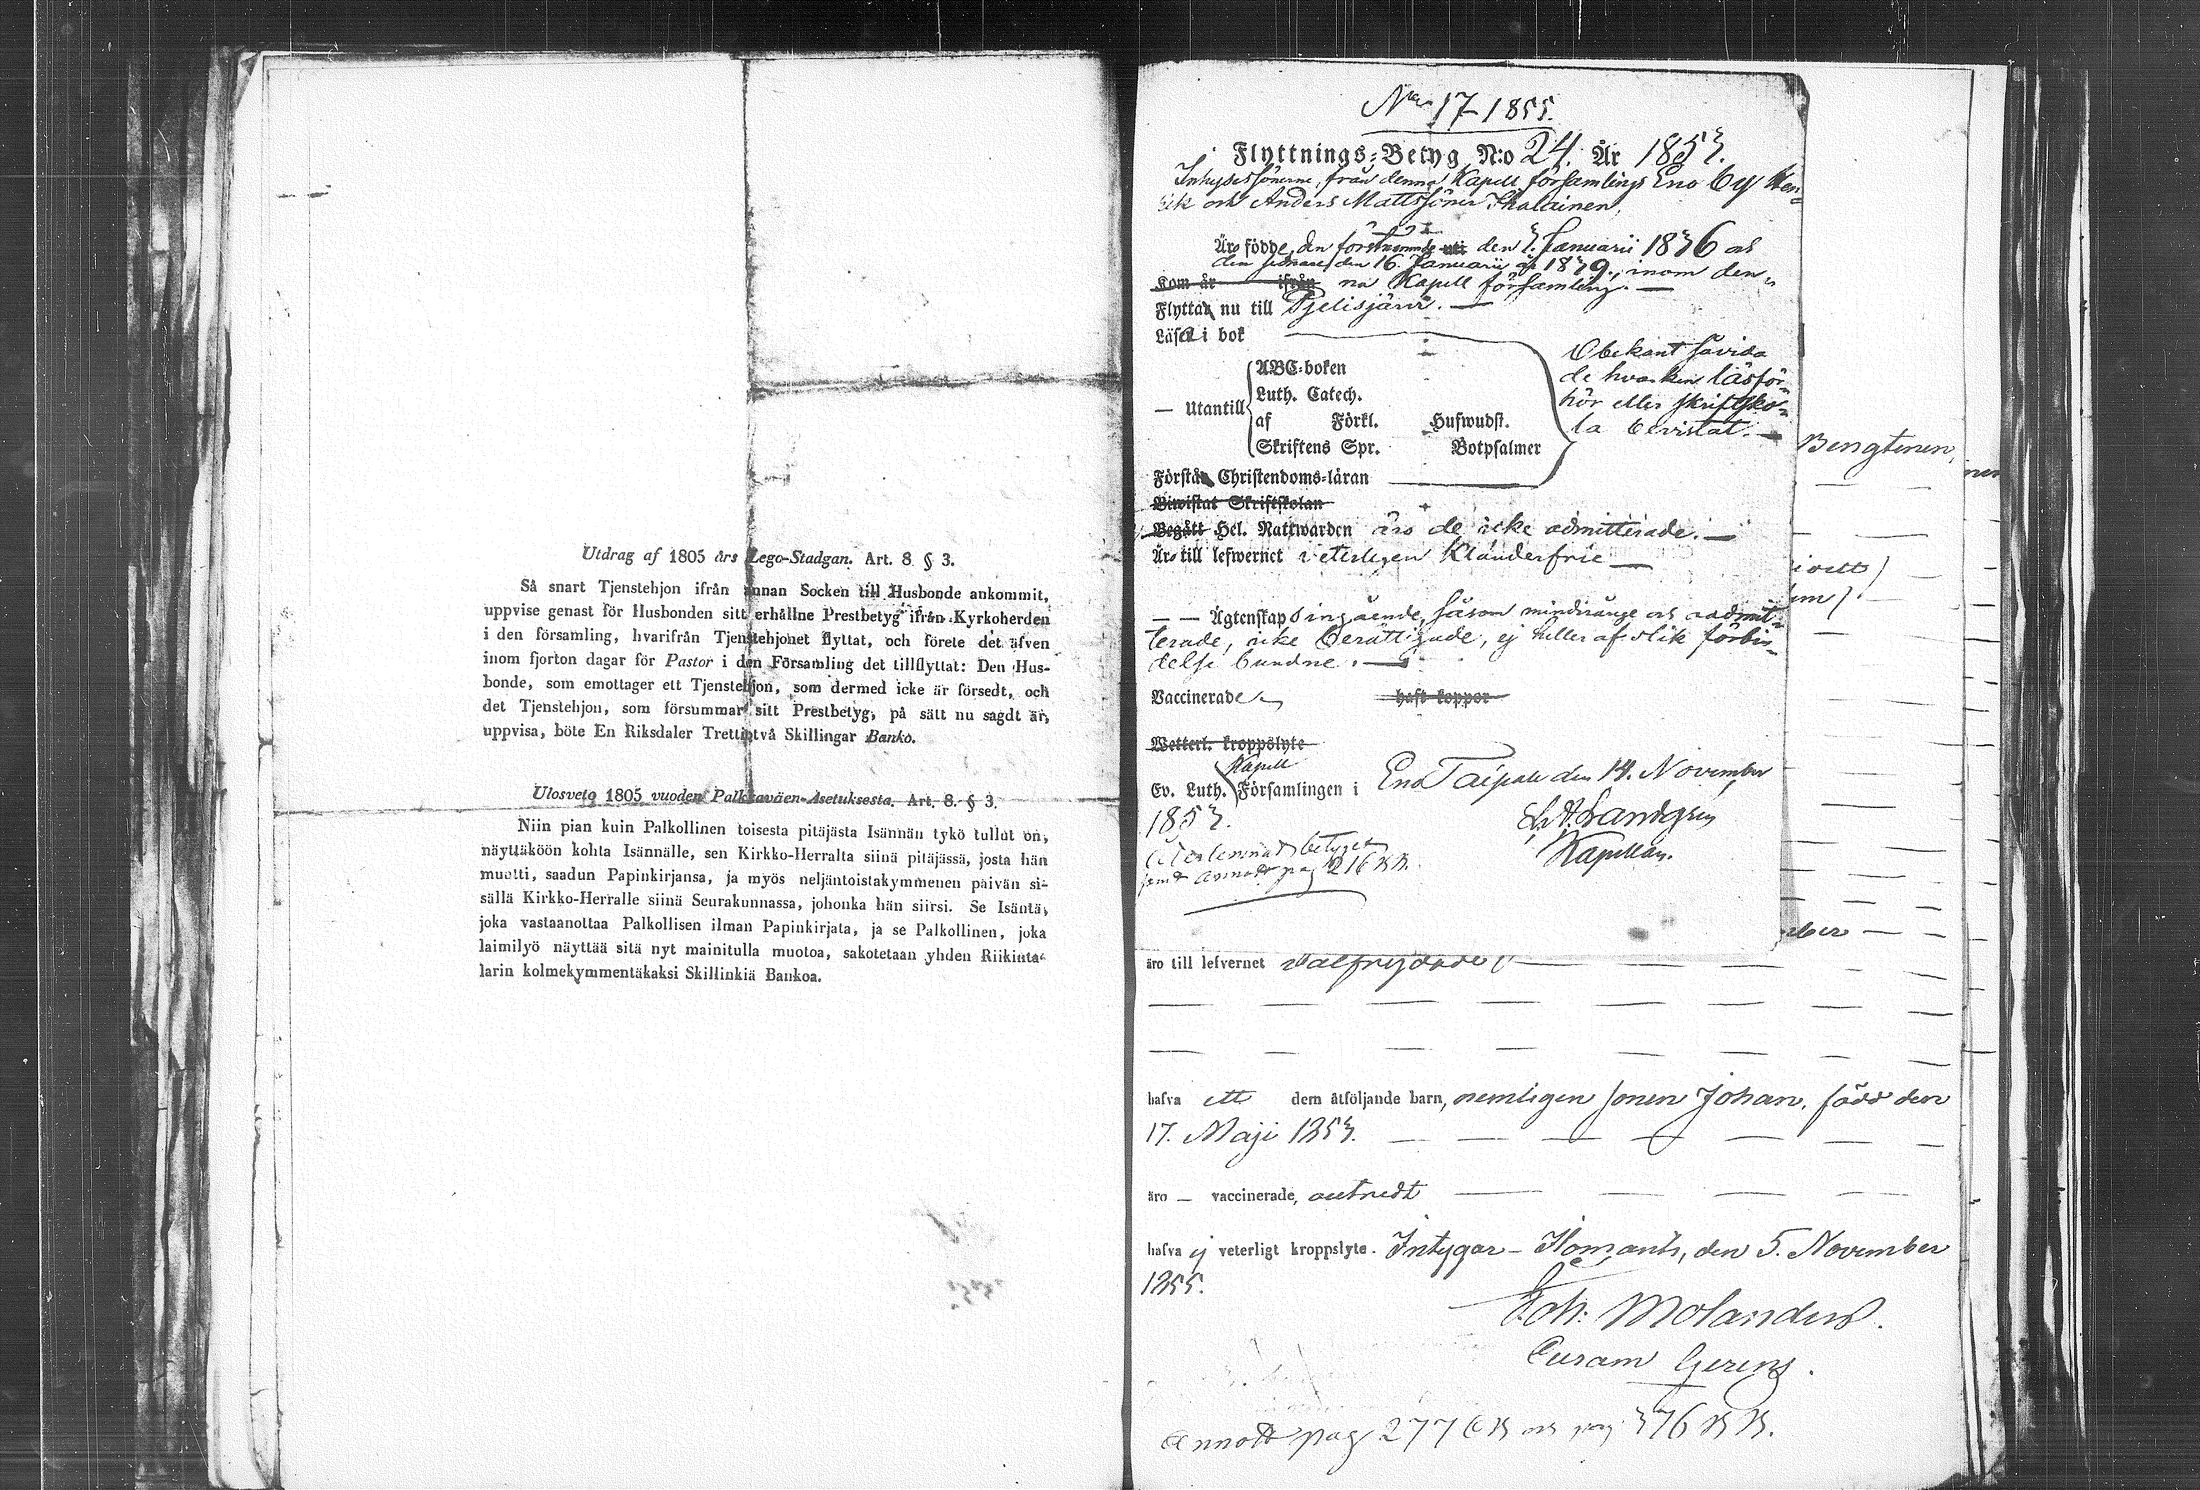 Utdrag af 1805 års Lego-Stadgan. Art. 8 § 3.
Så snart Tjenstehjon ifrån annan Socken till Husbonde ankommit,
uppvise genast för Husbonden sitt erhållne Prestbetyg ifrån Kyrkoherden
i den församling, hvarifrån Tjenstehjonet flyttat, och förete det äfven
inom fjorton dagar för Pastor i den Församling det tillflyttat: Den Hus-
bonde, som emottager ett Tjenstehjon, som dermed icke är försedt, och
det Tjenstehjon, som försummar sitt Prestbetyg, på sätt nu sagdt är,
uppvisa, böte En Riksdaler Trettiotvå Skillingar Banko.
Ulosveto 1805 vuoden Palkkaväen-Asetuksesta. Art. 8. § 3.
Niin pian kuin Palkollinen toisesta pitäjästä Isännän tykö tullut on,
näyttäköön kohta Isännälle, sen Kirkko-Herralta siinä pitäjässä, josta hän
muutti, saadun Papinkirjansa, ja myös neljäntoistakymmenen päivän si-
sällä Kirkko-Herralle siinä Seurakunnassa, johonka hän siirsi. Se Isäntä,
joka vastaanottaa Palkollisen ilman Papinkirjata, ja se Palkollinen, joka
laimilyö näyttää sitä nyt mainitulla muotoa, sakotetaan yhden Riikinta-
larin kolmekymmentäkaksi Skillinkiä Bankoa.
N:o 17 1855.
Flyttnings-Betyg N:o 24. År 1853.
Inhysessönerne, från denna Kapell församlings Eno by Hen-
rik och Anders Mattssöner Ikalainen,
Äro födde, den förstnemnde den 3. Januarii 1836 och
den sednare den 16. Januarii år 1839., inom den-
Kom år ifrån na Kapell församling. —
Flytta nu till Pjelisjärvi. —
Läsa i bok
ABC-boken
Luth. Catech.
— Utantill
af Förkl. Hufwudst.
Skriftens Spr. Botpsalmer
Obekant såvida
de hvarken läsför-
hör eller skriftsko-
la bevistat. —
Förstå Christendoms-läran
Biwistat Skriftskolan
Begått Hel. Nattwarden äro de icke admitterade. —
Äro till lefwernet veterligen klanderfrie —
— — Ägtenskaps ingående, såsom minderårige och oadmit-
terade, icke berättigade, ej heller af slik förbin-
delse bundne. —
Vaccinerade haft koppor
Wetterl. kroppslyte
Kapell
Ev. Luth. Församlingen i Eno Taipale den 14. November
1853.
L. A. Landgren
Kapellan.
betyget
samt annot pag 216 KB.
Bengtinen,
äro till lefvernet välfrejdade
hafva ett dem åtföljande barn, nemligen sonen Johan, född den
17. Maji 1853.
äro — vaccinerade, outredt
hafva ej veterligt kroppslyte. Intygar — Ilomants, den 5. November
1855.
Joh: Molander.
Curam Gerens.
Annot pag 277 CB och pag 376 KB.